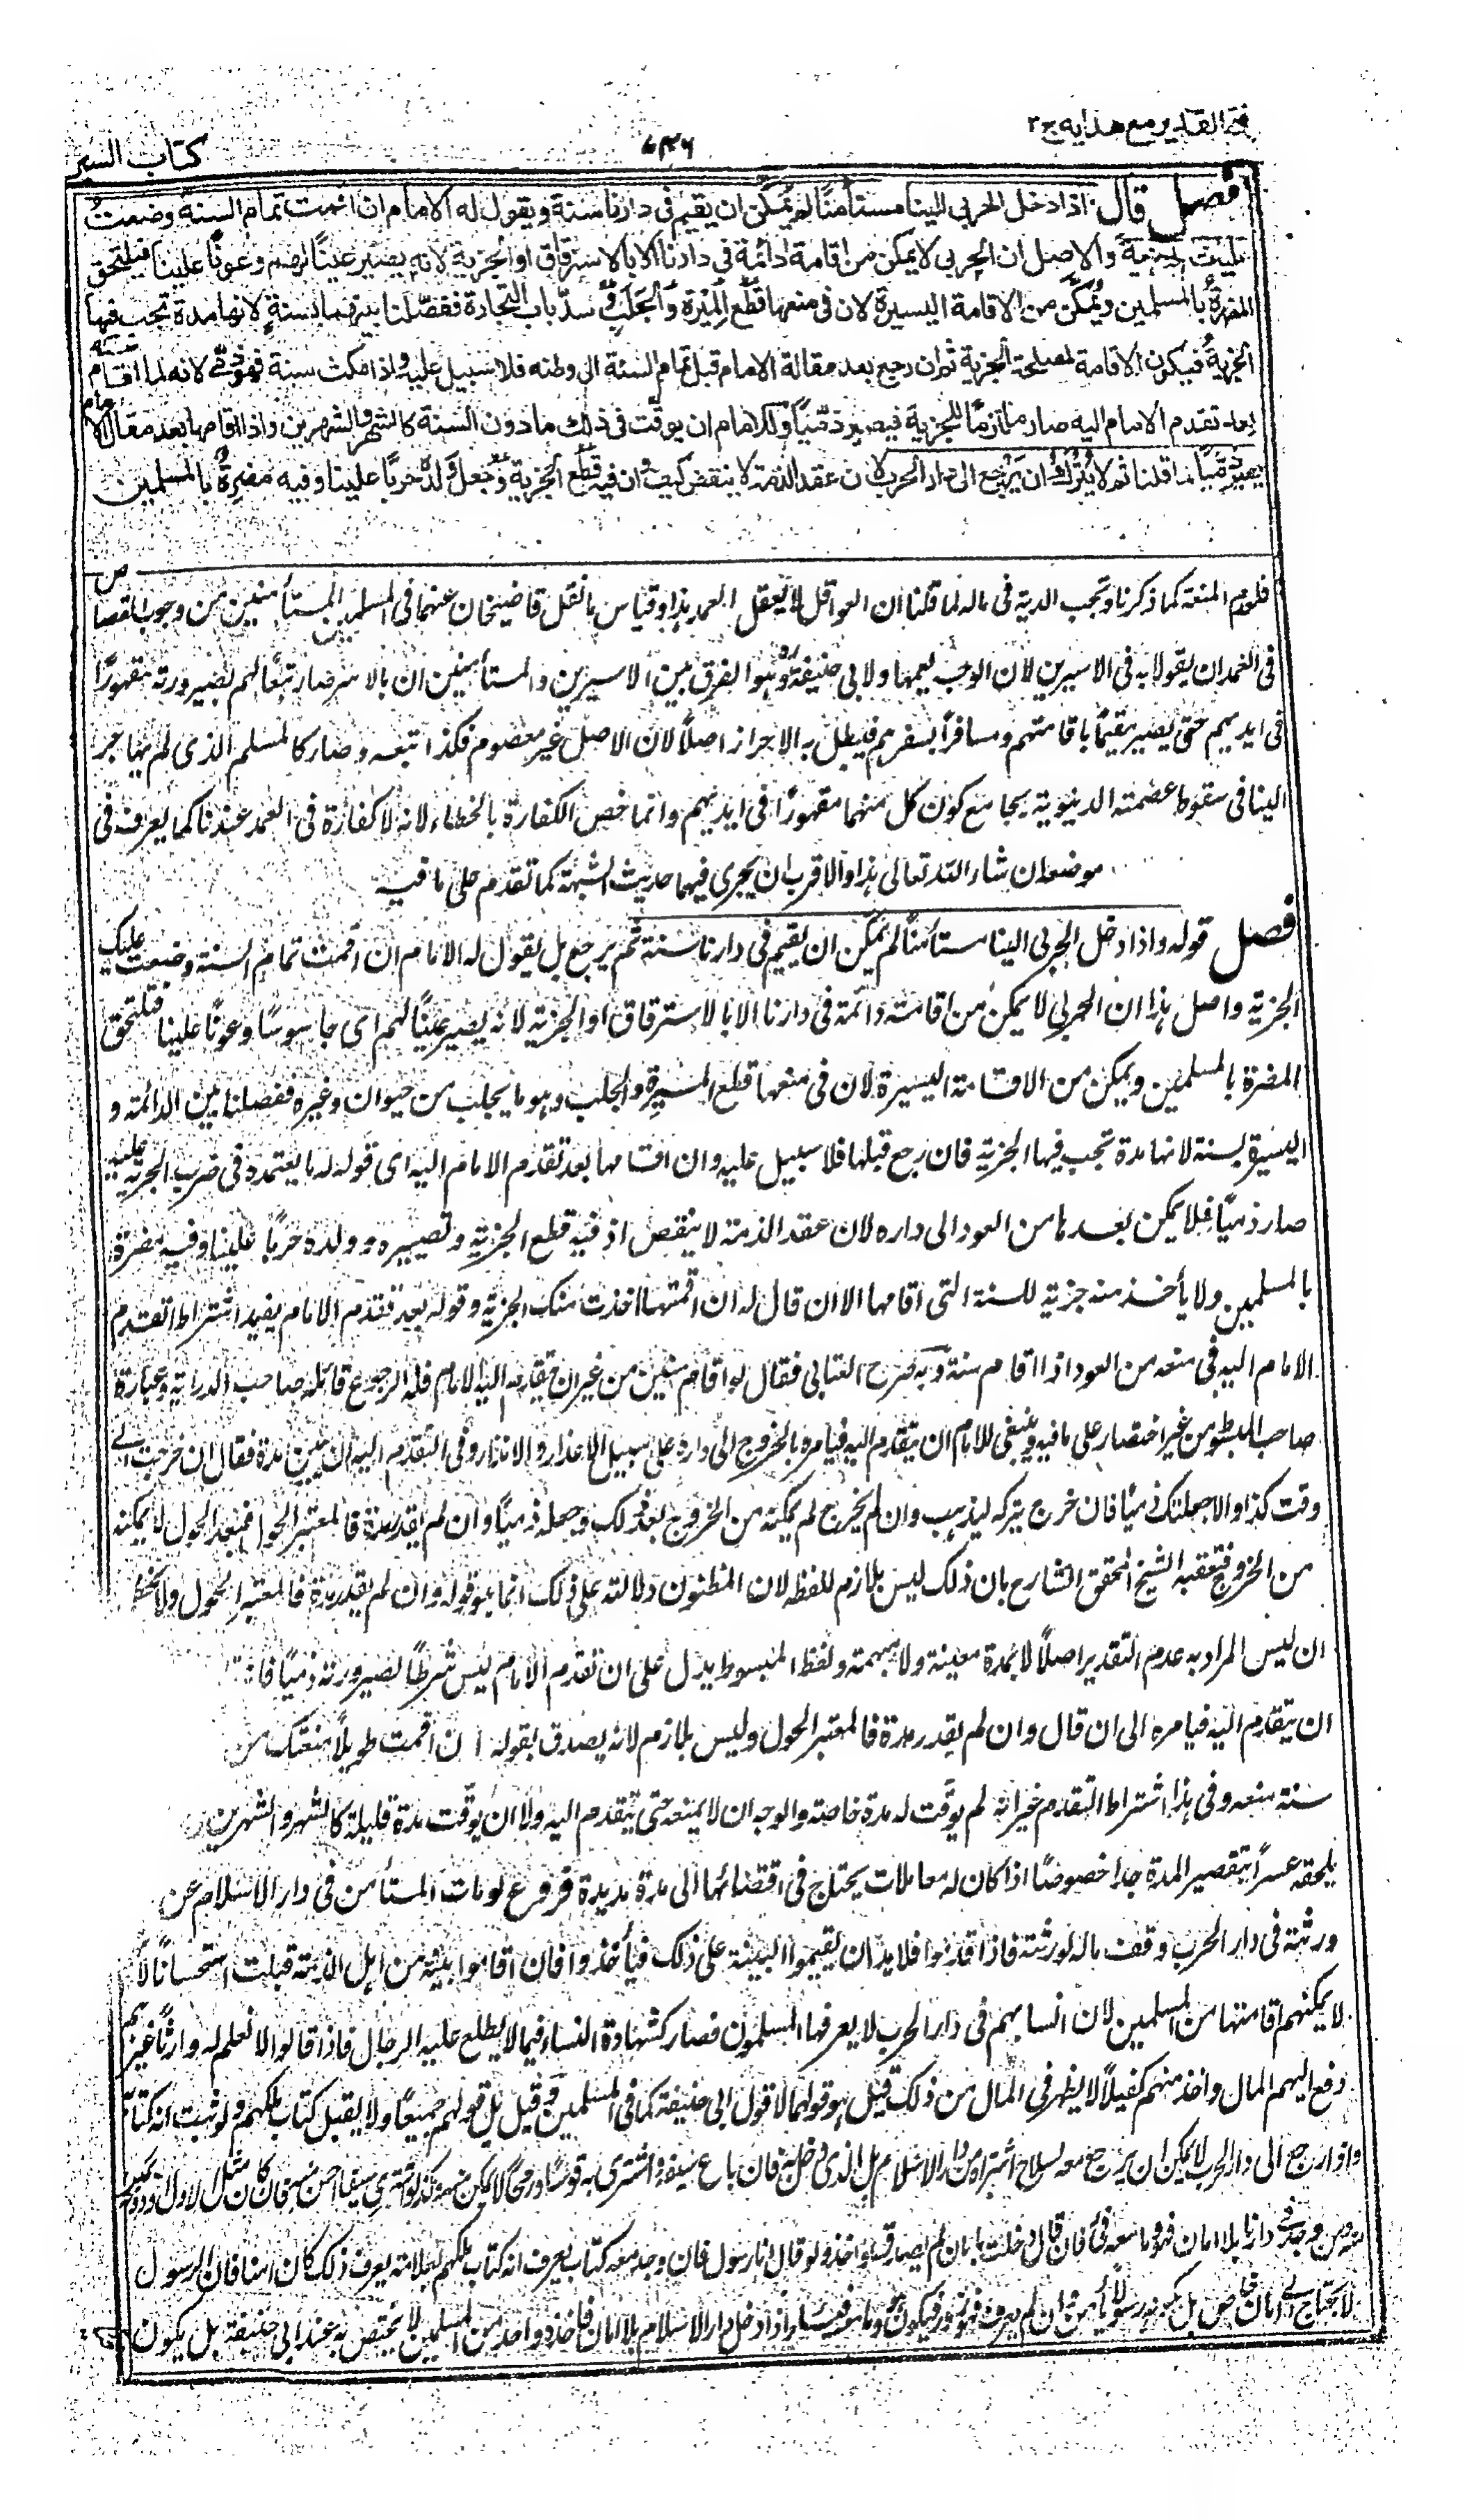 فتح القدير مع هدايه ج ٢
٧٣٦
كتاب السير
فصل قال اذا دخل الحربي الينا مستأمنًا لم يُمكَّن ان يقيم في دارنا سنة ويقول له الامام ان اقمت تمام السنة وضعتُ
عليك الجزية والاصل ان الحربي لا يمكن من اقامة دائمة في دارنا الا بالاسترقاق او الجزية لانه يصير عينًا لهم وعونًا علينا فيلتحق
المضرة بالمسلمين ويُمكَّن من الاقامة اليسيرة لان في منعها قَطْع المِيْرة والجَلَب وسدّ باب التجارة ففصّلنا بينهما بسنةٍ لانها مدة تجب فيها
الجزيةُ فيكون الاقامة لمصلحة الجزية ثم ان رجع بعد مقالة الامام قبل تمام السنة الى وطنه فلا سبيل عليه واذا مكث سنة فهو ذمّي لانه لما اقام سنة
بعد تقدم الامام اليه صار ملتزمًا للجزية فيصير ذمّيًا وللامام ان يوقّت في ذلك ما دون السنة كالشهر والشهرين واذا اقامها بعد مقال الامام
يصير ذمّيًا لما قلنا ثم لا يُتْرك ان يَرْجع الى دار الحرب لان عقد الذمة لا ينقض كيف وان فيه قطع الجزية وجعل ولده حربًا علينا وفيه مضرةٌ بالمسلمين
فلعدم المنعة كما ذكرنا وتجب الدية في ماله لما قلنا ان العواقل لا يعقل العمد هذا وقياس ما نقل قاضيخان عنهما في المسلمين المستأمنين من وجوب القصاص
في العمد ان يقولا به في الاسيرين لان الوجه يعمها ولابي حنيفة رہ وهو الفرق بين الاسيرين والمستأمنين ان بالاسر صار تبعًا لهم بصيرورته مقهورًا
في ايديهم حتى يصير مقيمًا باقامتهم ومسافرًا بسفرهم فيبطل به الاحراز اصلًا لان الاصل غير معصوم فكذا تبعه وصار كالمسلم الذي لم يهاجر
الينا في سقوط عصمته الدنيوية بجامع كون كل منهما مقهورًا في ايديهم وانما خص الكفارة بالخطاء لانه لا كفارة في العمد عندنا كما يعرف في
موضعه ان شاء الله تعالى هذا والاقرب ان يجري فيهما حديث الشبهة كما تقدم على ما فيه
فصل قوله واذا دخل الحربي الينا مستأمنًا لم يمكن ان يقيم في دارنا سنة ثم يرجع بل يقول له الامام ان اقمت تمام السنة وضعت عليك
الجزية واصل هذا ان الحربي لا يمكن من اقامة دائمة في دارنا الا بالاسترقاق او الجزية لانه يصير عينًا لهم اي جاسوسًا وعونًا علينا فتلتحق
المضرة بالمسلمين ويمكن من الاقامة اليسيرة لان في منعها قطع الميرة والجلب وهو ما يجلب من حيوان وغيره ففصلنا بين الدائمة و
اليسيرة بسنة لانها مدة تجب فيها الجزية فان رجع قبلها فلا سبيل عليه وان اقامها بعد تقدم الامام اليه اي قوله له ما يعتمده في ضرب الجزية عليه
صار ذميًا فلا يمكن بعدها من العود الى داره لان عقد الذمة لا ينقض اذ فيه قطع الجزية وتصييره وولده حربًا علينا وفيه مضرة
بالمسلمين ولا يأخذ منه جزية للسنة التي اقامها الا ان قال له ان اقمتها اخذت منك الجزية وقوله بعد تقدم الامام يفيد اشتراط تقدم
الامام اليه في منعه من العود اذا اقام سنة وبه صرح العتابي فقال لو اقام سنين من غير ان يتقدم اليه الامام فله الرجوع قاله صاحب الدراية وعبارة
صاحب المبسوط من غير اختصار على ما فيه ينبغي للامام ان يتقدم اليه فيامره بالخروج الى داره على سبيل الاعذار والانذار وفي التقدم اليه ان يبين مدة فقال ان خرجت الى
وقت كذا والا جعلتك ذميًا فان خرج يتركه ليذهب وان لم يخرج لم يمكنه من الخروج بعد ذلك وجعله ذميًا وان لم يقدر مدة فالمعتبر الحول فبعد الحول لا يمكنه
من الخروج فتعقبه الشيخ المحقق الشارح بان ذلك ليس بلازم للفظه لان المظنون دلالته على ذلك انما هو قوله وان لم يقدر مدة فالمعتبر الحول ولا يخفى
ان ليس المراد به عدم التقدير اصلًا لا بمدة معينة ولا مبهمة ولفظ المبسوط يدل على ان تقدم الامام ليس شرطًا لصيرورته ذميًا
ان يتقدم اليه فيامره الى ان قال وان لم يقدر مدة فالمعتبر الحول وليس بلازم لانه يصدق بقوله ان اقمت طويلًا منعتك من
سنة منعه وفي هذا اشتراط التقدم غير انه لم يوقت له مدة خاصة والوجه ان لا يمنعه حتى يتقدم اليه ولا ان يوقت مدة قليلة كالشهر والشهرين
يلحقه عسرًا بتقصير المدة جدا خصوصًا اذا كان له معاملات يحتاج في اقتضائها الى مدة مديدة فروع لو مات المستأمن في دار الاسلام عن
ورثة في دار الحرب وقف ماله لورثته فاذا قدموا فلا بد ان يقيموا البينة على ذلك فيأخذوا فان اقاموا بينة من اهل الذمة قبلت استحسانًا
لا يمكنهم اقامتها من المسلمين لان انسابهم في دار الحرب لا يعرفها المسلمون فصار كشهادة النساء فيما لا يطلع عليه الرجال فاذا قالوا لا نعلم له وارثًا غيرهم
دفع اليهم المال واخذ منهم كفيلًا لما يظهر في المال من ذلك قيل هو قولهما لا قول ابي حنيفة كما في المسلمين وقيل بل قولهم جميعًا ولا يقبل كتاب ملكهم ولو ثبت انه كتابه
واذا رجع الى دار الحرب لا يمكن ان يرجع معه بسلاح اشتراه من دار الاسلام بل بالذي دخل به فان باع سيفه واشترى به قوسًا او رمحًا لا يمكن منه وكذا لو اشترى سيفًا احسن منه فان كان مثل الاول او دونه يمكن
منه ومن وجد في دارنا بلا امان فهو وما معه فئ فان قال دخلت بامان لم يصدق واخذ ولو قال انا رسول فان وجد معه كتاب يعرف انه كتاب ملكهم بعلامة يعرف ذلك كان آمنا فان الرسول
لا يحتاج الى امان خاص بل بكونه رسولًا يأمن وان لم يعرف فهو زور فيكون هو وما معه فيئا واذا دخل دار الاسلام بلا امان فاخذه واحد من المسلمين لا يختص به عند ابي حنيفة بل يكون